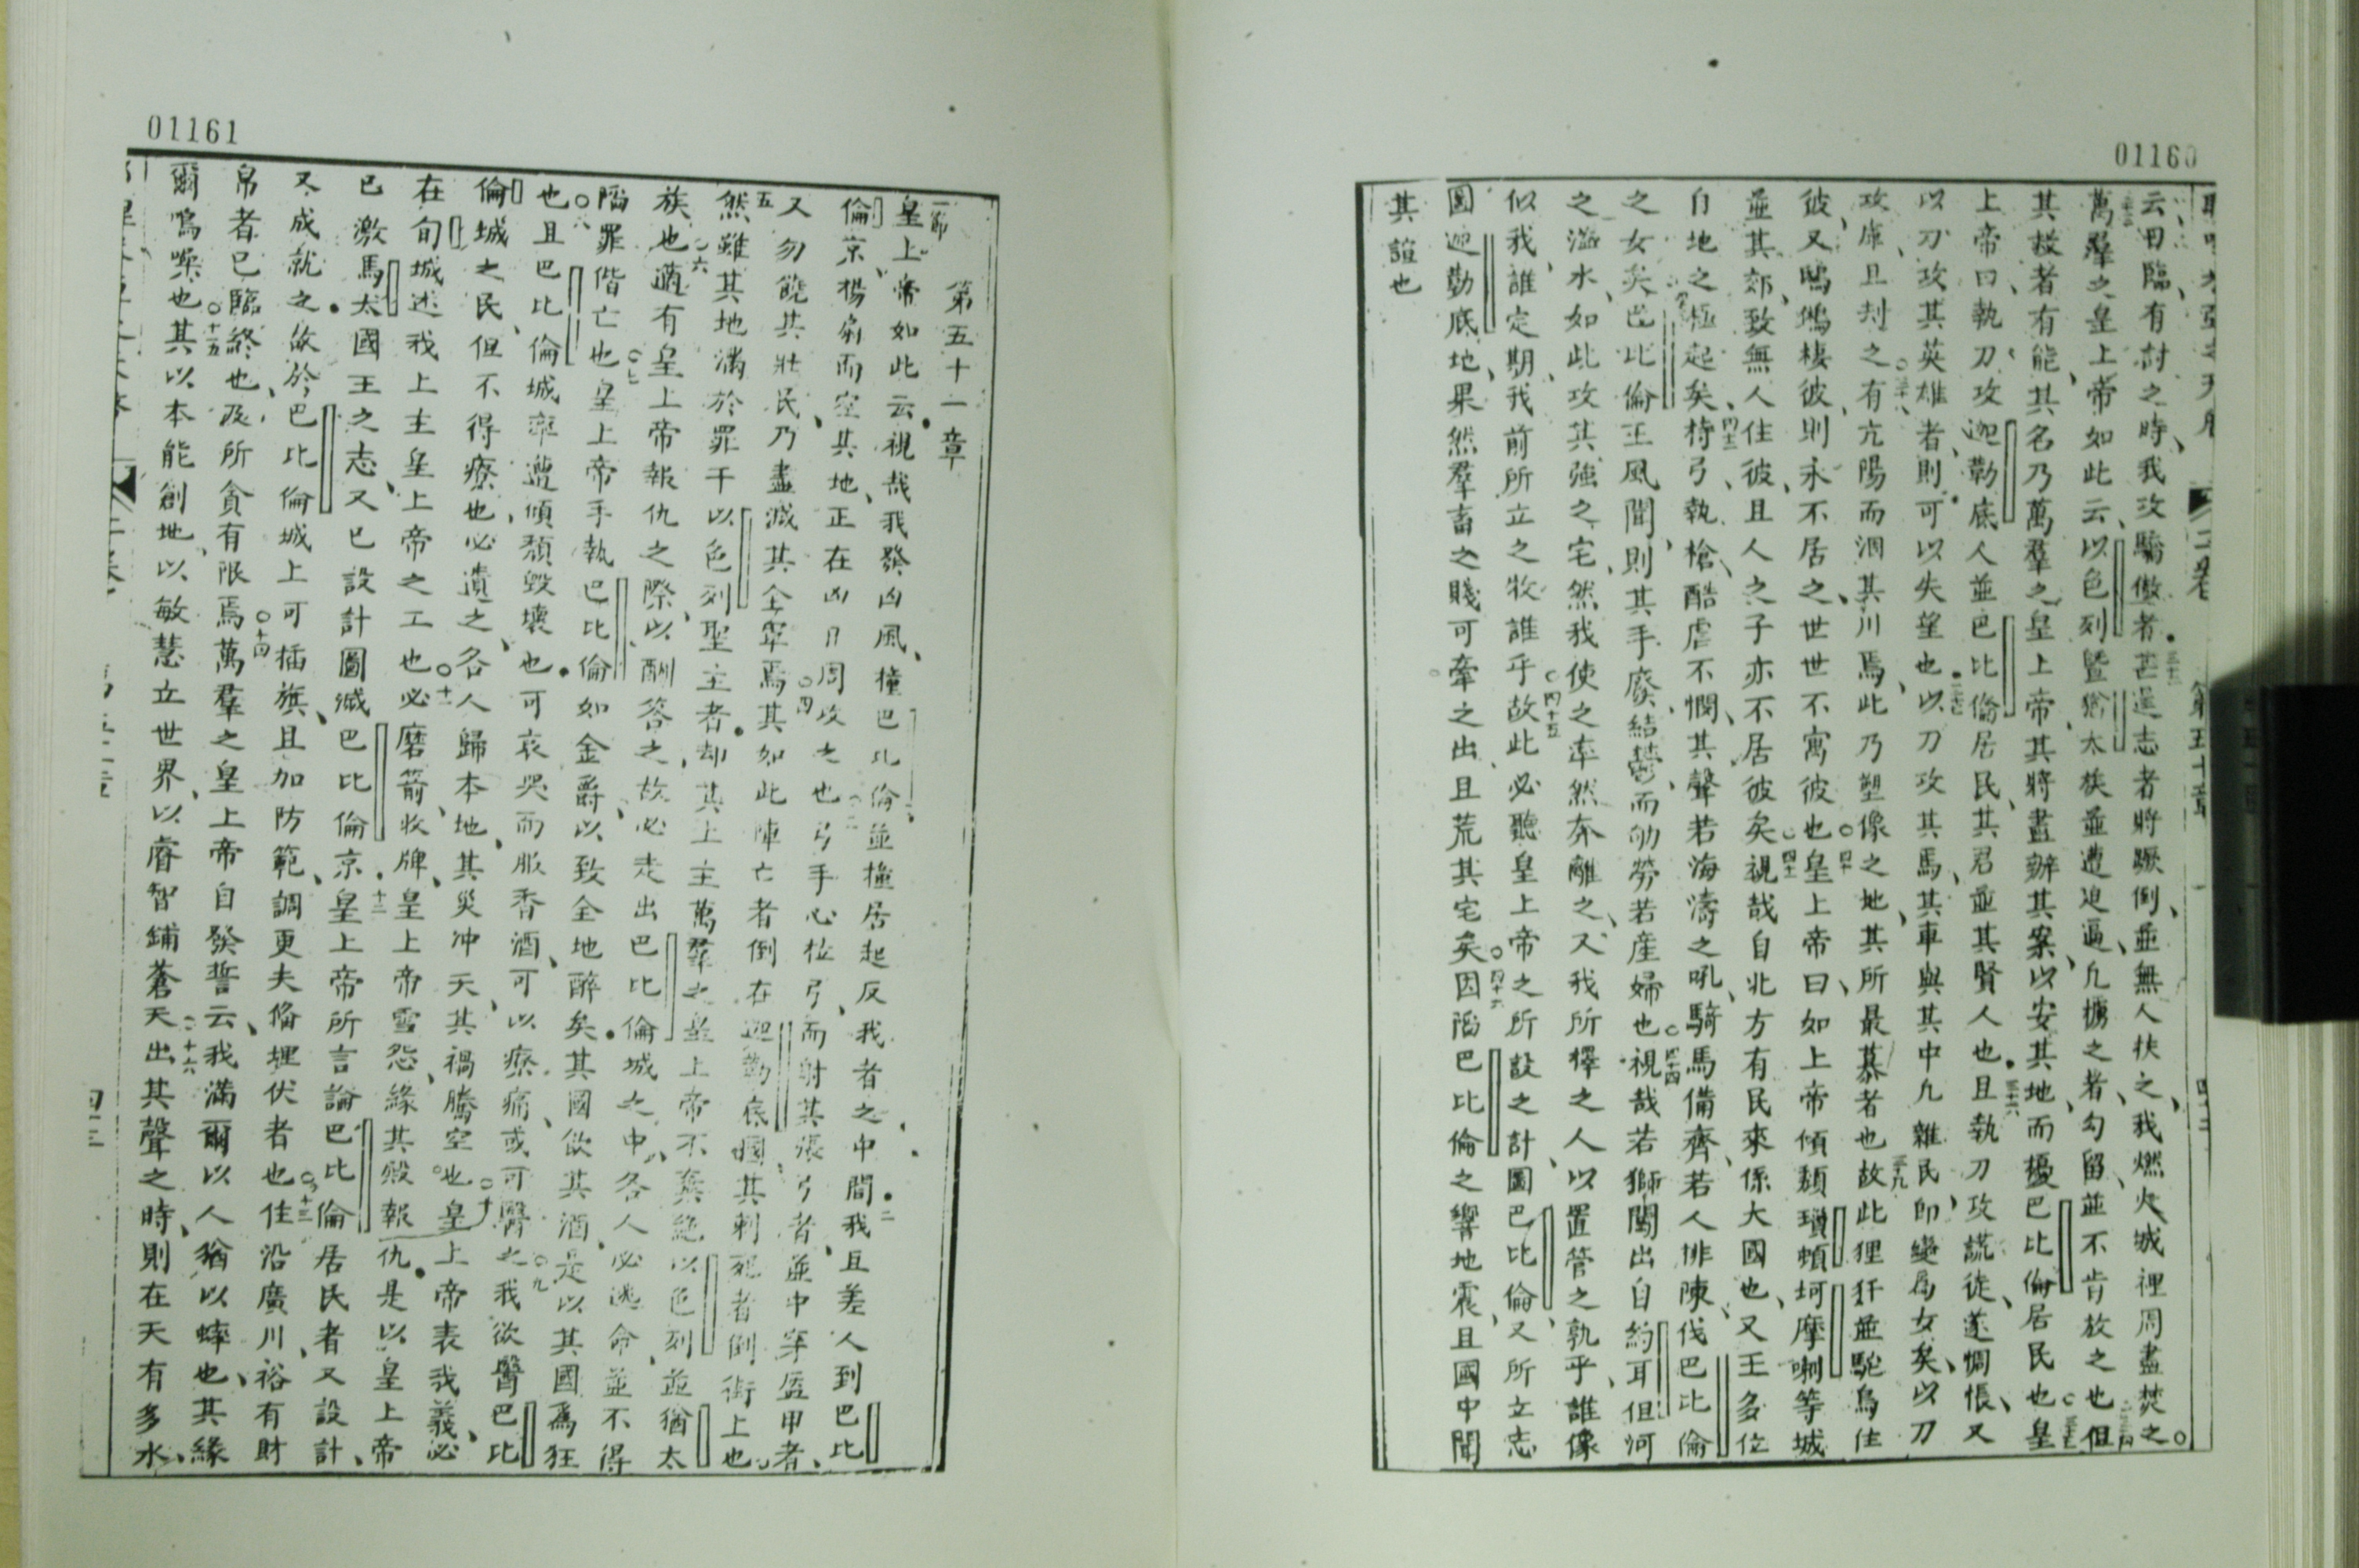 01160
云日臨、有討之時、我攻驕傲者、
者將蹶倒、並無人扶之、我燃火城裡周盡焚之。
萬羣之皇上帝如此云、以色列暨猶太族並遭迫逼、凡擄之者、勾留、並不肯放之也但
其救者有能、其名乃萬羣之皇上帝、其將盡辦其案以安其地、而擾巴比倫居民也皇
上帝曰、執刀攻迦勒底人並巴比倫居民、其君並其賢人也且執刀攻謊徒、遂惆悵、又
以刀攻其英雄者、則可以失望也以刀攻其馬、其車與其中凡雜民、即變為女矣、以刀
攻庫、且刦之有亢陽而涸其川焉、此乃塑像之地、其所最慕者也故此狸犴並駝鳥住
彼、又鳴鳩棲彼、則永不居之、世世不寓彼也皇上帝曰、如上帝傾頽瑣頓坷摩喇等城
並其郊、致無人住彼、且人之子亦不居彼矣視哉自北方有民來係大國也、又王多位
自地之極起矣持弓、執槍、酷虐不憫、其聲若海濤之吼、騎馬備齊、若人排陳、伐巴比倫
之女矣巴比倫王風聞、則其手廢、結鬱而劬勞若産婦也視哉若獅闖出自約耳但河
之溢水、如此攻其強之宅、然我使之率然奔離之、又我所擇之人以置管之孰乎、誰像
似我、誰定期、我前所立之牧誰乎故此必聽皇上帝之所設之計、圖巴比倫、又所立志
圖迦勒底地、果然羣畜之賤可牽之出、且荒其宅矣因陷巴比倫之響地震、且國中聞
其諠也
01161
第五十一章
一節
皇上帝如此云、視哉我發凶風、撞巴比倫並撞居起反我者之中間二我且差人到巴比
倫京、楊扇而空其地、正在凶日周攻之也弓手必拉弓、而射其張弓者、並中穿盔甲者、
又勿饒其壯民、乃盡滅其全軍焉四其如此陣亡者倒在迦勒底國、其刺死者倒街上也
五然雖其地滿於罪干以色列聖主者、却其上主萬羣之皇上帝不棄絶以色列、並猶太
族也六適有皇上帝報仇之際、以酬答之、故必走出巴比倫城之中、各人必逃命並不得
陷罪偕亡也七皇上帝手執巴比倫如金爵、以致全地醉矣其國飲其酒、是以其國為狂
也八且巴比倫城率遭傾頽毀壞也可哀哭而服香酒、可以療痛、或可醫之九我欲醫巴比
倫城之民、但不得療也、必遺之、各人歸本地、其災冲天、其禍騰空也十皇上帝表我義、必
在旬城述我上主皇上帝之工也十一必磨箭、收牌、皇上帝雪怨、緣其殿報仇是以皇上帝
已激馬太國王之志、又已設計圖滅巴比倫京十二皇上帝所言論巴比倫居民者又設計、
又成就之故於巴比倫城上可插旗、且加防範、調更夫俻埋伏者也十三住沿廣川、裕有財
帛者已臨終也、及所貪有限焉十四萬羣之皇上帝自發誓云、我滿爾以人猶以蟀也、其緣
爾鳴噪也十五其以本能創地、以敏慧立世界、以睿智鋪蒼天十六出其聲之時、則在天有多水、